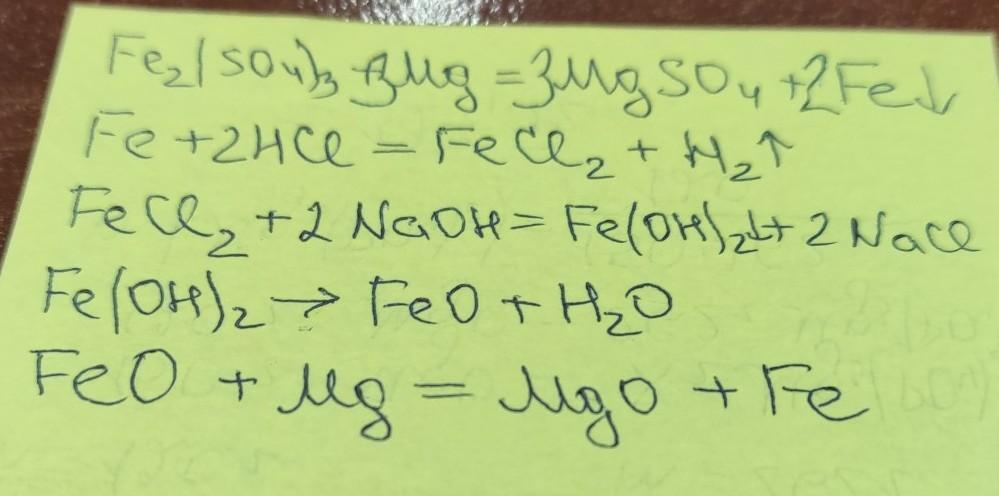 Fe₂(SO₄)₃ + 3Mg = 3MgSO₄ + 2Fe↓
Fe + 2HCl = FeCl₂ + H₂↑
FeCl₂ + 2NaOH = Fe(OH)₂↓ + 2NaCl
Fe(OH)₂ → FeO + H₂O
FeO + Mg = MgO + Fe